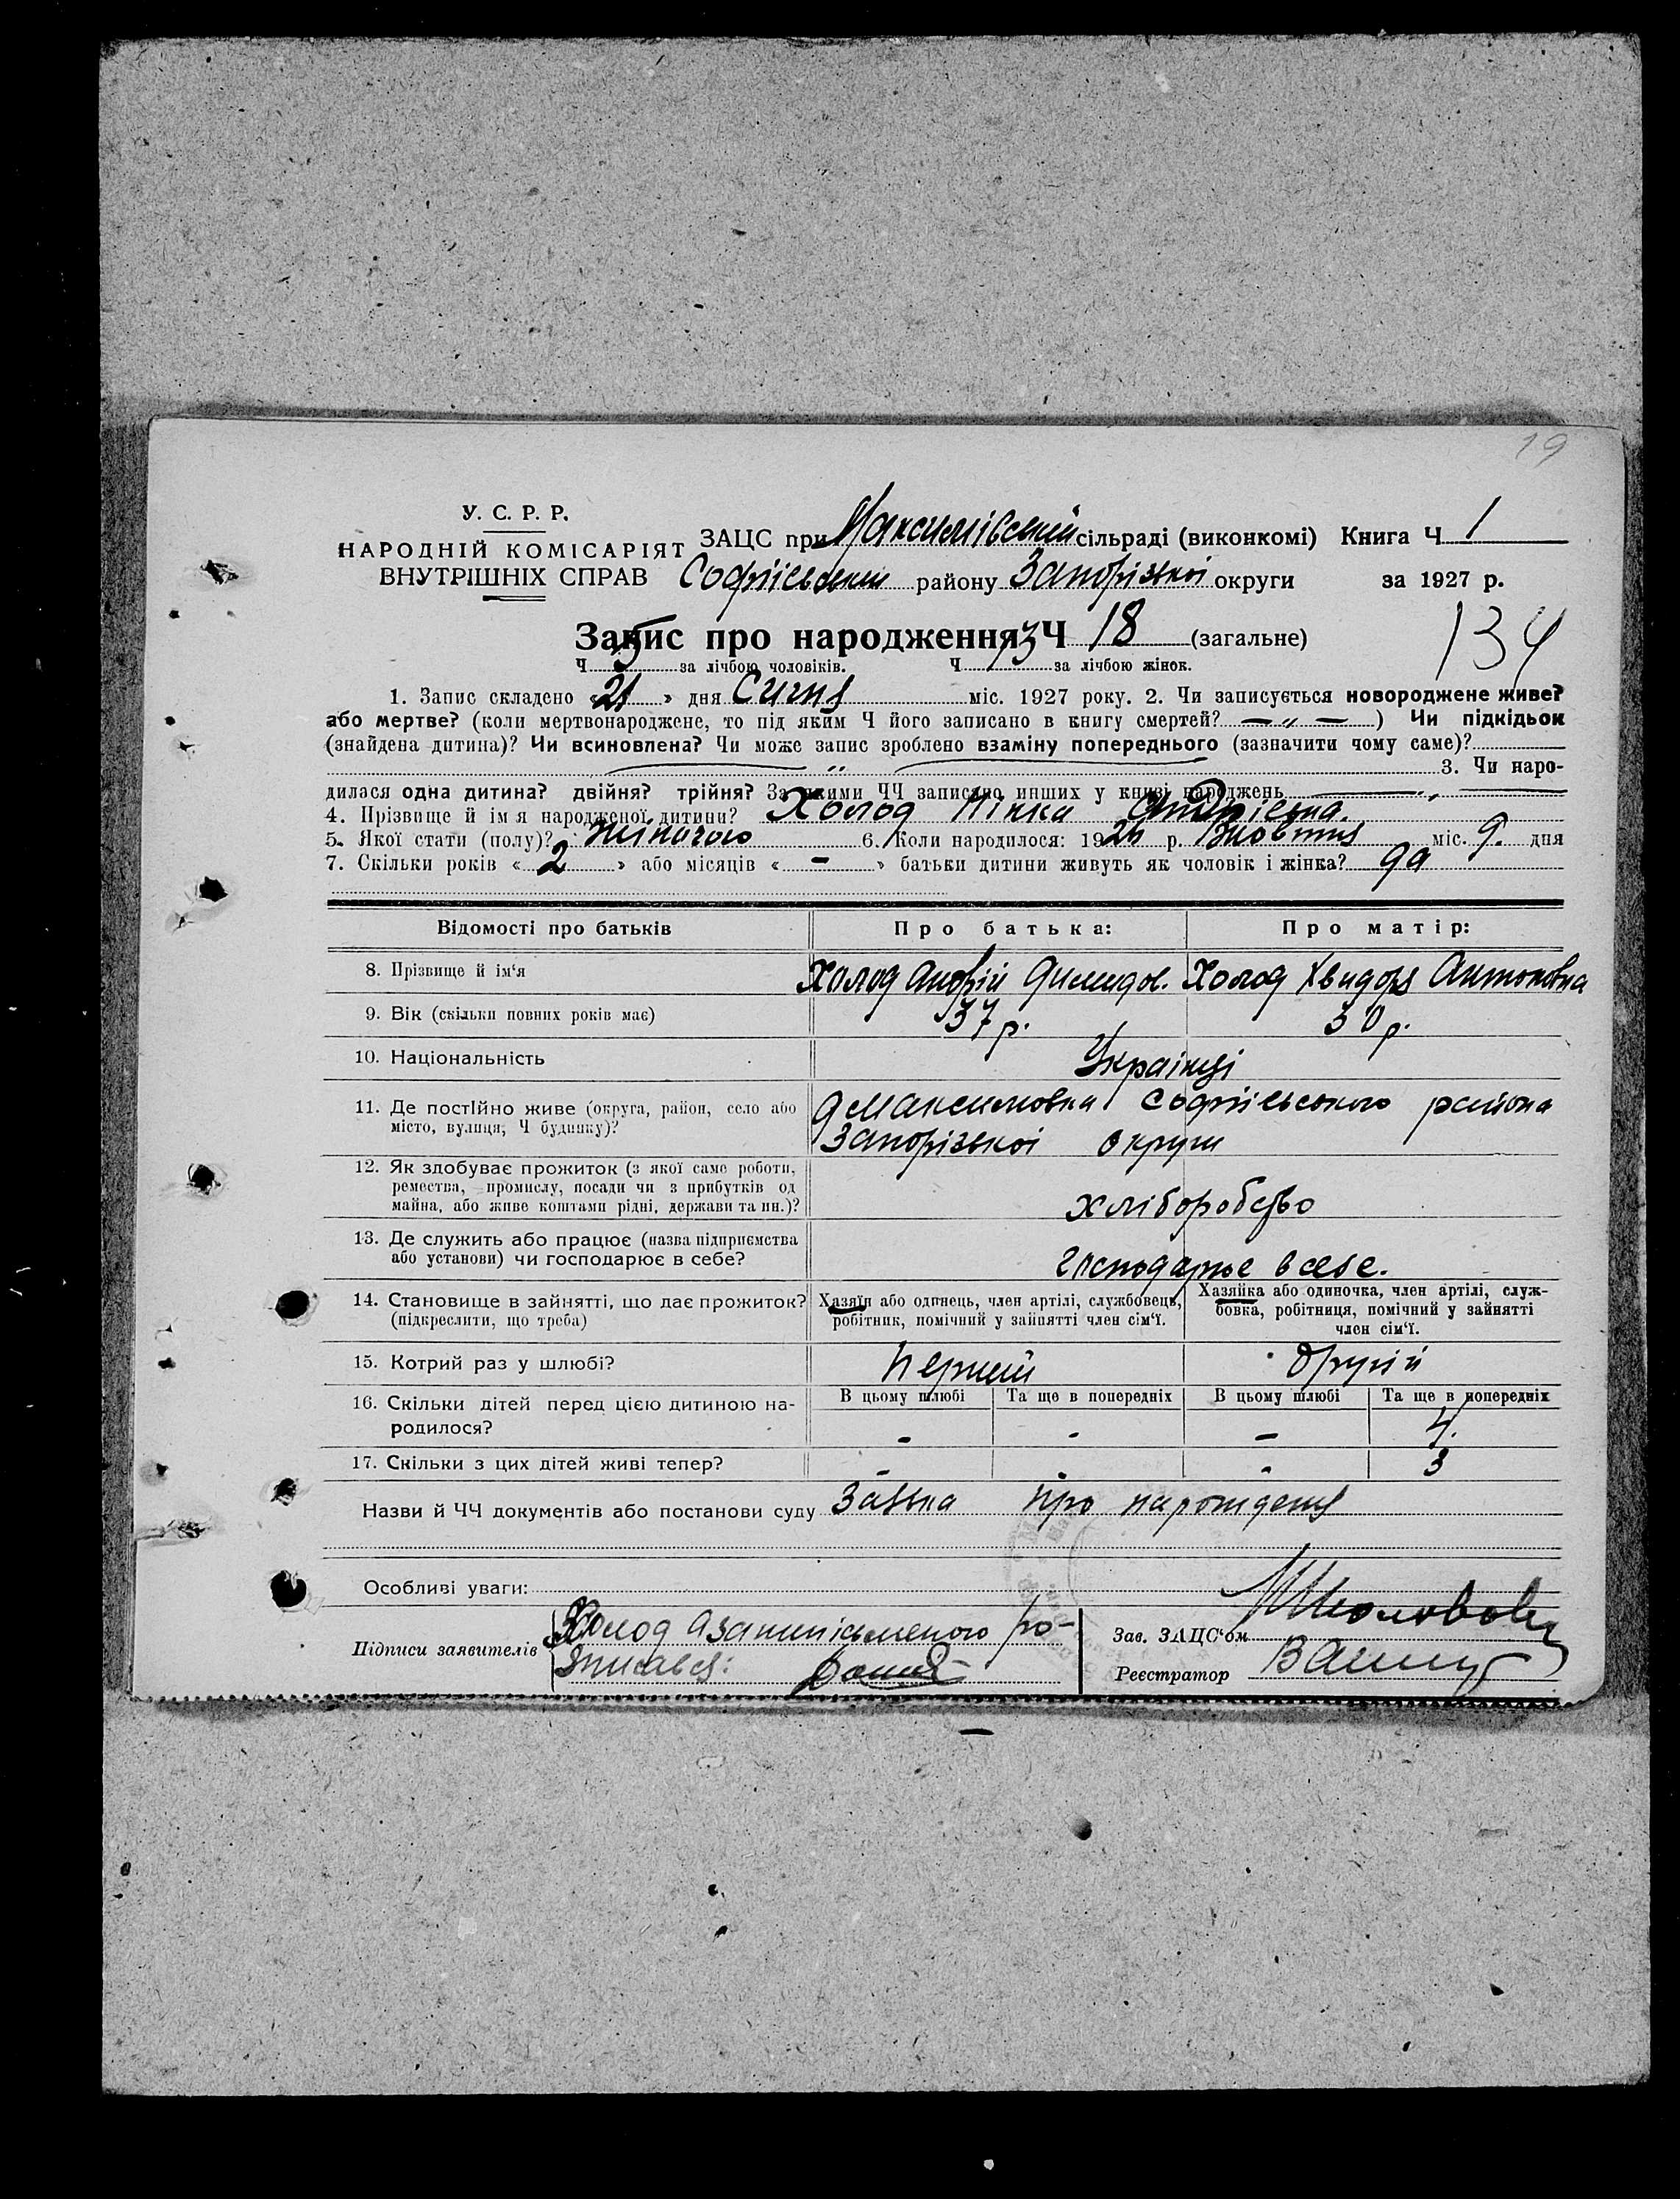 19
У. С. Р. Р.
НАРОДНІЙ КОМІСАРІЯТ
ВНУТРІШНІХ СПРАВ
ЗАЦС при Максимівський сільраді (виконкомі) Книга Ч 1
Софіївський району Запорізькоі округи за 1927 р.
Запис про народження Ч 18 (загальне)
134
Ч 5 за лічбою чоловіків. Ч 13 за лічбою жінок.
1. Запис складено «21» дня Сичня міс. 1927 року. 2. Чи записується новороджене живе?
або мертве? (коли мертвонароджене, то під яким Ч його записано в книгу смертей? — „ —) Чи підкідьок
(знайдена дитина)? Чи всиновлена? Чи може запис зроблено взаміну попереднього (зазначити чому саме)?
„ 3. Чи наро-
дилася одна дитина? двійня? трійня? За якими ЧЧ записано инших у книзі народжень — „ —
4. Прізвище й імя народженої дитини? Холод Нінка Андріевна.
5. Якої стати (полу)? жіночого 6. Коли народилося: 1926 р. міс. 9. дня
7. Скільки років «2» або місяців «-» батьки дитини живуть як чоловік і жінка? да
Відомості про батьків Про батька: Про матір:
8. Прізвище й ім'я Холод Андрій Холод Хвидора Антоновна
9. Вік (скільки повних років має) 37 р. 30 р.
10. Національність Українці
11. Де постІйно живе (округа, район, село або
місто, вулиця, Ч будинку)?
д Максимовка Софіієвського района
Запорізькоі округи
12. Як здобуває прожиток (з якої саме роботи,
ремества, промислу, посади чи з прибутків од
майна, або живе коштами рідні, держави та ин.)?
хліборобство
13. Де служить або працює (назва підприємства
або установи) чи господарює в себе?
господарює в себе.
14. Становище в зайнятті, що дає прожиток?
(підкреслити, що треба)
Хазяїн або одинець, член артілі, службовець,
робітник, помічний у зайнятті член сім'ї.
Хазяйка або одиночка, член артілі, служ-
бовка, робітниця, помічний у зайнятті
член сім'ї.
15. Котрий раз у шлюбі? перший другій
16. Скільки дітей перед цією дитиною на-
родилося?
В цьому шлюбі Та ще в попередніх В цьому шлюбі Та ще в попередніх
- - - 4.
17. Скільки з цих дітей живі тепер? - - - 3
Назви й ЧЧ документів або постанови суду Заявка про народженя
Особливі уваги:
Підписи заявителів Холод а за ро-
Зав. ЗАЦС'ом
Реєстратор